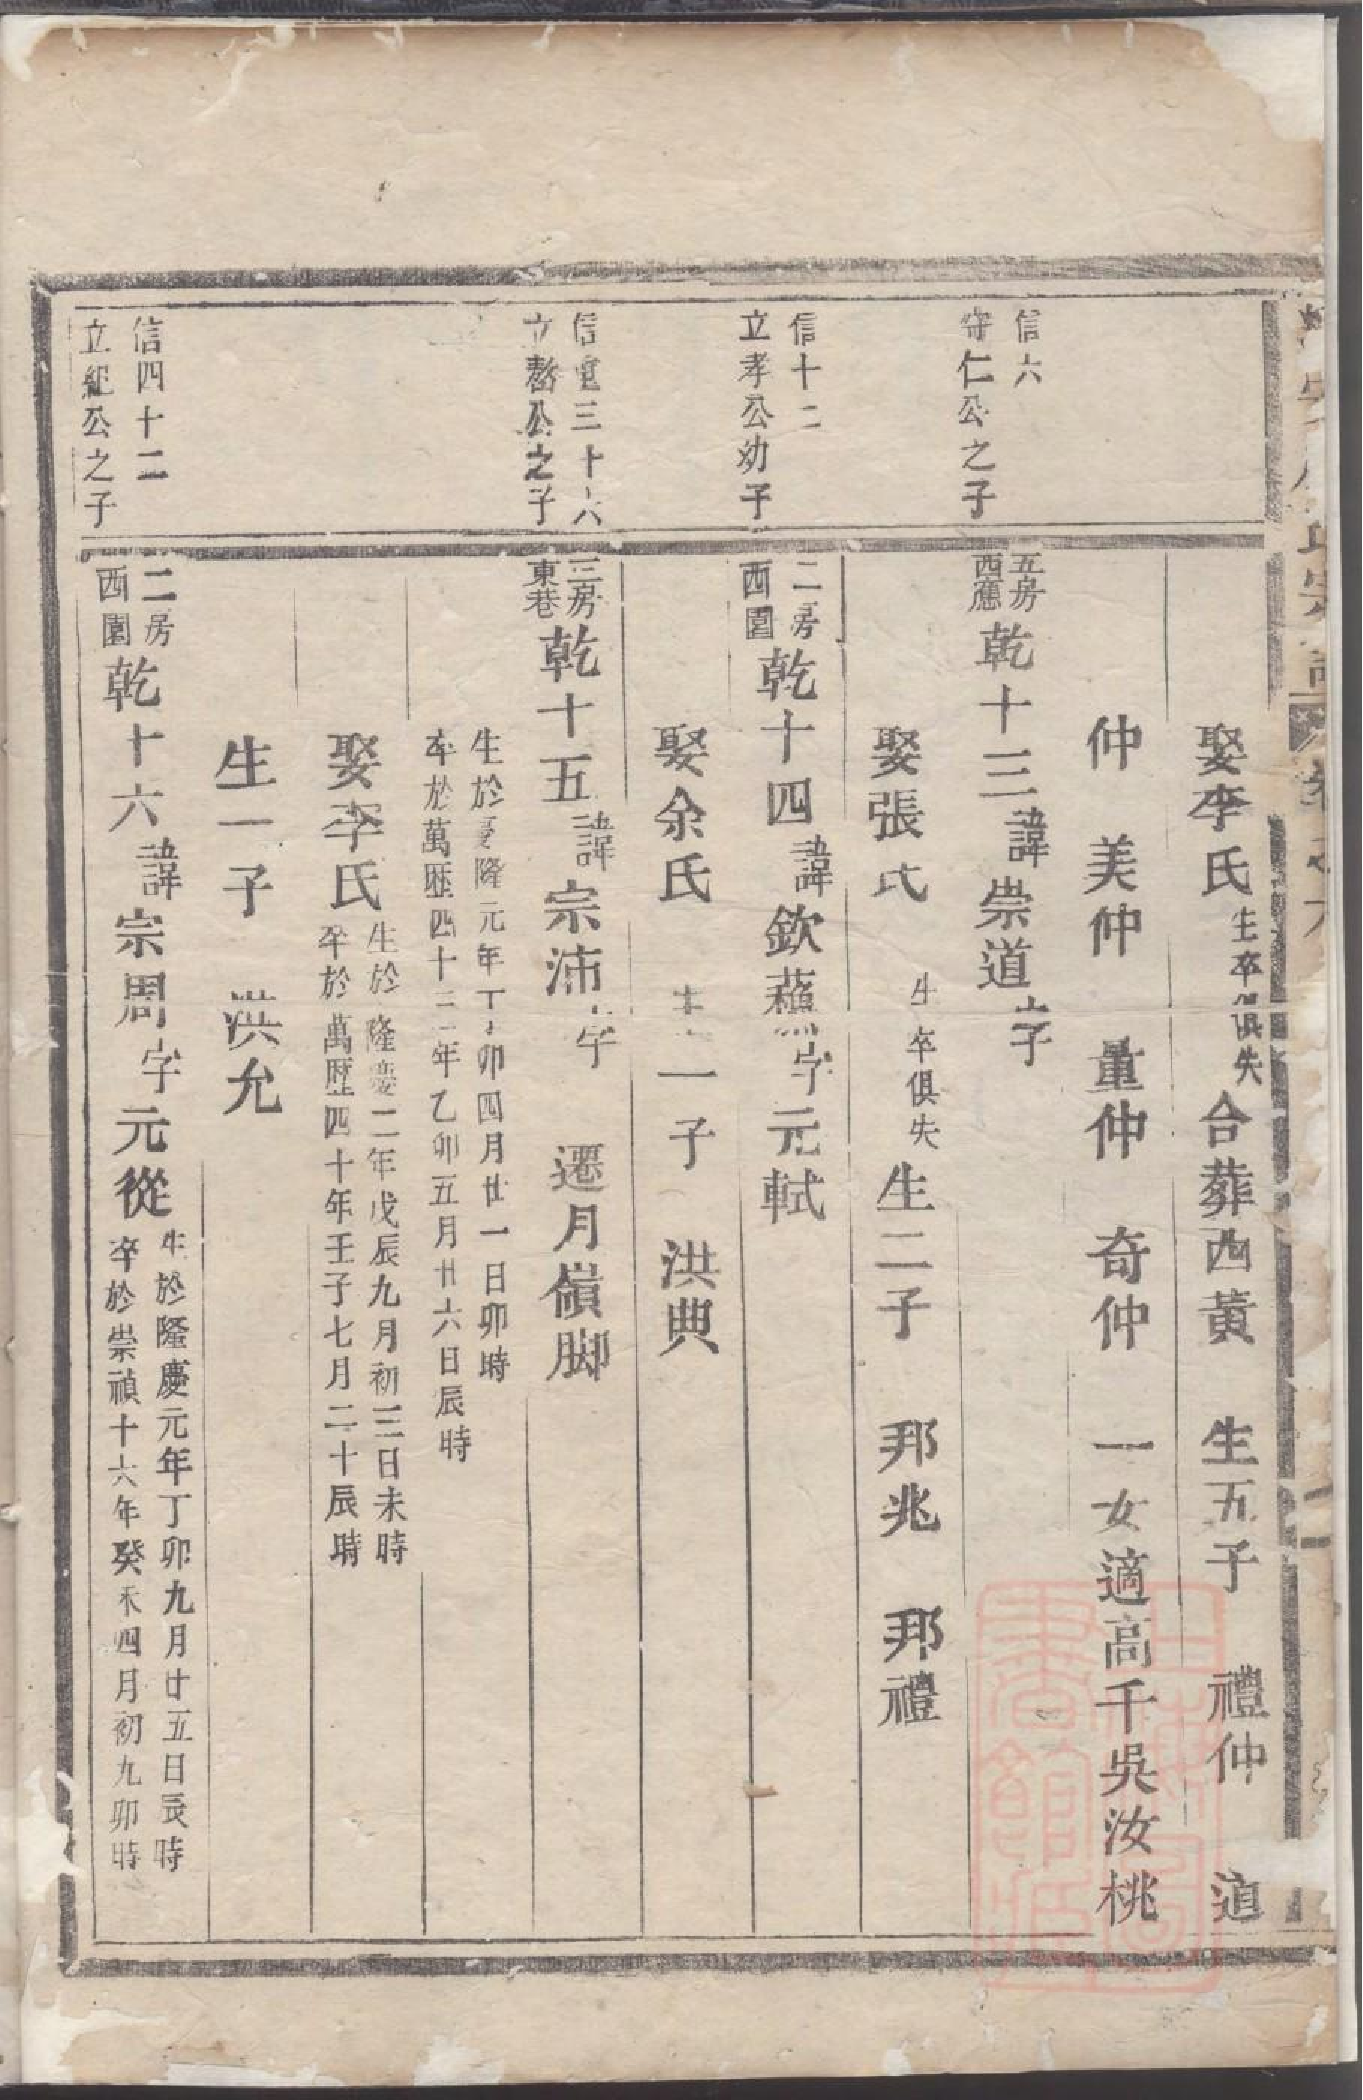 娶李氏 生卒俱失 合葬西黄 生五子 禮仲 道
仲 美仲 量仲 奇仲 一女適高千吳汝桃
信六
守仁公之子
五房
西應
乾十三 諱 崇道 字
娶張氏 生卒俱失 生二子 邦兆 邦禮
信十二
立孝公幼子
二房
西園
乾十四 諱 欽蘓 字 元軾
娶余氏 生一子 洪典
信重三十六
立嶅公之子
三房
東巷
乾十五 諱 宗沛 字 遷月嶺脚
生於隆元年丁卯四月廿一日卯時
卒於萬歷四十三年乙卯五月廿六日辰時
娶李氏
生於隆慶二年戊辰九月初三日未時
卒於萬歷四十年壬子七月二十辰時
生一子 洪允
信四十二
立紀公之子
二房
西園
乾十六 諱 宗周 字 元從
生於隆慶元年丁卯九月廿五日辰時
卒於崇禎十六年癸未四月初九卯時